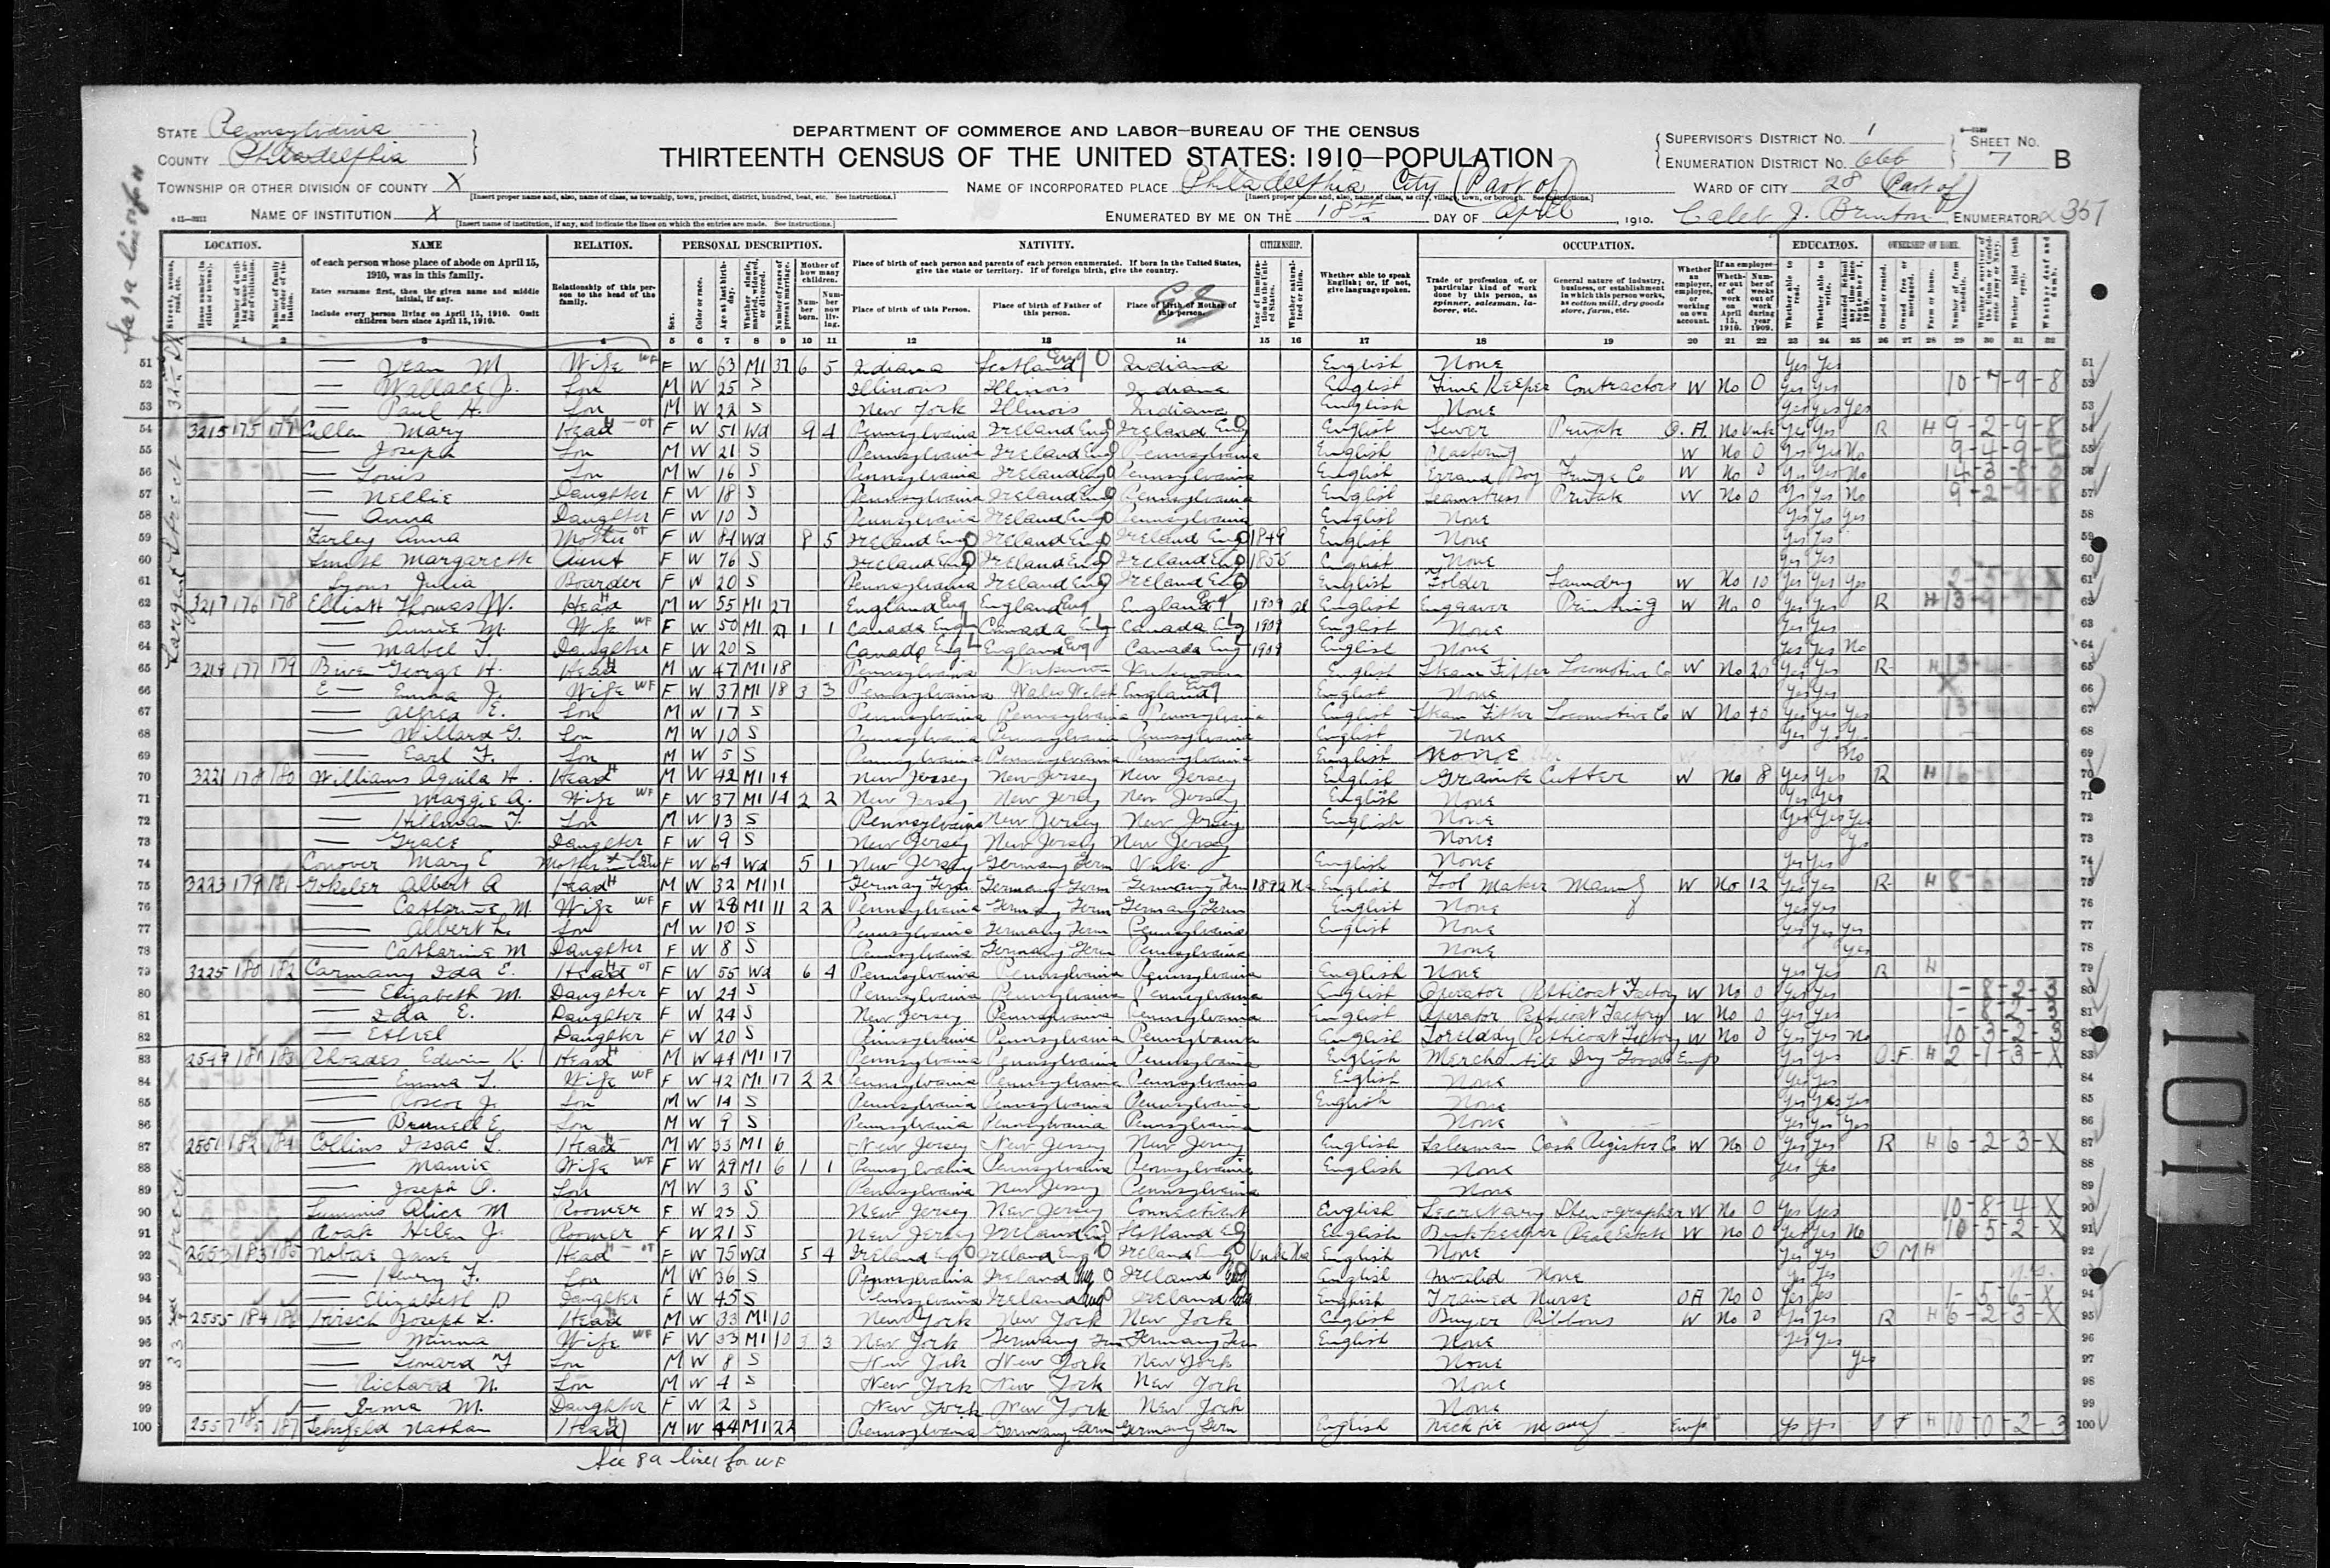 STATE Pennsylvania
COUNTY Philadelphia
TOWNSHIP OR OTHER DIVISION OF COUNTY X
NAME OF INSTITUTION X
DEPARTMENT OF COMMERCE AND LABOR—BUREAU OF THE CENSUS
THIRTEENTH CENSUS OF THE UNITED STATES: 1910—POPULATION
NAME OF INCORPORATED PLACE Philadelphia City (Part of)
ENUMERATED BY ME ON THE 18th DAY OF April 1910. Caleb J. Brinton ENUMERATOR
SUPERVISOR'S DISTRICT No. 1
ENUMERATION DISTRICT No. 666
SHEET No. 7 B
WARD OF CITY 28 (Part of)
LOCATION. NAME RELATION. PERSONAL DESCRIPTION. NATIVITY. CITIZENSHIP. OCCUPATION. EDUCATION. OWNERSHIP OF HOME.
of each person whose place of abode on April 15, 1910, was in this family.
Enter surname first, then the given name and middle initial, if any.
Include every person living on April 15, 1910. Omit children born since April 15, 1910.
Relationship of this person to the head of the family.
Place of birth of each person and parents of each person enumerated. If born in the United States, give the state or territory. If of foreign birth, give the country.
Place of birth of this Person. Place of birth of Father of this person. Place of birth of Mother of this person.
Whether able to speak English; or, if not, give language spoken.
51 — Jean M Wife F W 63 M1 37 6 5 Indiana Scotland Eng Indiana English None Yes Yes 51
52 — Wallace J. Son M W 25 S Illinois Illinois Indiana English Time Keeper Contractor W No 0 Yes Yes 10-7-9-8 52
53 — Paul H. Son M W 22 S New York Illinois Indiana English None Yes Yes Yes 53
54 3215 175 177 Cullen Mary Head F W 51 Wd 9 4 Pennsylvania Ireland Eng Ireland Eng English Sewer Private O.A. No Unk Yes Yes R H 9-2-9-8 54
55 — Joseph Son M W 21 S Pennsylvania Ireland Eng Pennsylvania English Plastering W No 0 Yes Yes No 9-4-9-8 55
56 — Louis Son M W 16 S Pennsylvania Ireland Eng Pennsylvania English Errand Boy Fringe Co W No 0 Yes Yes No 56
57 — Nellie Daughter F W 18 S Pennsylvania Ireland Eng Pennsylvania English Seamstress Private W No 0 Yes Yes No 9-2-9-8 57
58 — Anna Daughter F W 10 S Pennsylvania Ireland Eng Pennsylvania English None Yes Yes Yes 58
59 Farley Anna Mother F W 84 Wd 8 5 Ireland Eng Ireland Eng Ireland Eng 1849 English None Yes Yes 59
60 Smith Margareth Aunt F W 76 S Ireland Eng Ireland Eng Ireland Eng 1855 English None Yes Yes 60
61 Lyons Julia Boarder F W 20 S Pennsylvania Ireland Eng Ireland Eng English Folder Laundry W No 10 Yes Yes Yes 61
62 3217 176 178 Elliott Thomas W. Head M W 55 M1 27 England Eng England Eng England Eng 1909 al English Engraver Printing W No 0 Yes Yes R H 62
63 — Annie M. Wife F W 50 M1 27 1 1 Canada Eng Canada Eng Canada Eng 1909 English None Yes Yes 63
64 — Mabel T. Daughter F W 20 S Canada Eng England Eng Canada Eng 1909 English None Yes Yes No 64
65 3219 177 179 George H. Head M W 47 M1 18 Pennsylvania Unknown Unknown English Steam Fitter Locomotive Co W No 20 Yes Yes R H 65
66 — Emma J. Wife F W 37 M1 18 3 3 Pennsylvania Wales Welsh England Eng English None Yes Yes 66
67 — Alfred E. Son M W 17 S Pennsylvania Pennsylvania Pennsylvania English Steam Fitter Locomotive Co W No 40 Yes Yes Yes 67
68 — Willard G. Son M W 10 S Pennsylvania Pennsylvania Pennsylvania English None Yes Yes Yes 68
69 — Earl F. Son M W 5 S Pennsylvania Pennsylvania Pennsylvania English None No 69
70 3221 178 180 Williams Aquila H. Head M W 42 M1 14 New Jersey New Jersey New Jersey English Granite Cutter W No 8 Yes Yes R H 70
71 — Maggie A. Wife F W 37 M1 14 2 2 New Jersey New Jersey New Jersey English None Yes Yes 71
72 — Son M W 13 S Pennsylvania New Jersey New Jersey English None Yes Yes Yes 72
73 — Grace Daughter F W 9 S New Jersey New Jersey New Jersey None Yes 73
74 Conover Mary E Mother in Law F W 64 Wd 5 1 New Jersey Germany Germ Unk. English None Yes Yes 74
75 3223 179 181 Gokeler Albert A Head M W 32 M1 11 Germany Germ Germany Germ Germany Germ 1892 Na English Tool Maker Manuf W No 12 Yes Yes R H 75
76 — Catharine M. Wife F W 28 M1 11 2 2 Pennsylvania Germany Germ Germany Germ English None Yes Yes 76
77 — Albert L. Son M W 10 S Pennsylvania Germany Germ Pennsylvania English None Yes Yes Yes 77
78 — Catharine M Daughter F W 8 S Pennsylvania Germany Germ Pennsylvania None Yes 78
79 3225 180 182 Carmany Ida E. Head F W 55 Wd 6 4 Pennsylvania Pennsylvania Pennsylvania English None Yes Yes R H 79
80 — Elizabeth M. Daughter F W 29 S Pennsylvania Pennsylvania Pennsylvania English Operator Petticoat Factory W No 0 Yes Yes 80
81 — Ida E. Daughter F W 24 S New Jersey Pennsylvania Pennsylvania English Operator Petticoat Factory W No 0 Yes Yes 81
82 — Ethel Daughter F W 20 S Pennsylvania Pennsylvania Pennsylvania English Forelady Petticoat Factory W No 0 Yes Yes No 10-3-2-3 82
83 2549 181 183 Rhoades Edwin K. Head M W 44 M1 17 Pennsylvania Pennsylvania Pennsylvania English Merchantile Dry Goods Emp Yes Yes O F H 2-1-3-X 83
84 — Emma L. Wife F W 42 M1 17 2 2 Pennsylvania Pennsylvania Pennsylvania English None Yes Yes 84
85 — Roscoe J. Son M W 14 S Pennsylvania Pennsylvania Pennsylvania English None Yes Yes Yes 85
86 — E. Son M W 9 S Pennsylvania Pennsylvania Pennsylvania None Yes Yes Yes 86
87 2551 182 184 Collins Issac L. Head M W 33 M1 6 New Jersey New Jersey New Jersey English Salesman Cash Register Co W No 0 Yes Yes R H 6-2-3-X 87
88 — Mamie Wife F W 29 M1 6 1 1 Pennsylvania Pennsylvania Pennsylvania English None Yes Yes 88
89 — Joseph O. Son M W 3 S Pennsylvania New Jersey Pennsylvania None 89
90 Alice M Roomer F W 23 S New Jersey New Jersey Connecticut English Secretary Stenographer W No 0 Yes Yes 10-8-4-X 90
91 Helen J. Roomer F W 21 S New Jersey Ireland Eng Scotland Eng English Bookkeeper Real Estate W No 0 Yes Yes No 10-5-2-X 91
92 2553 183 185 Jane Head F W 75 Wd 5 4 Ireland Eng Ireland Eng Ireland Eng Unk Na English None Yes Yes O M H 92
93 — Henry F. Son M W 36 S Pennsylvania Ireland Eng Ireland Eng English Invalid None Yes Yes 93
94 — Elizabeth D Daughter F W 45 S Pennsylvania Ireland Eng Ireland Eng English Trained Nurse OA No 0 Yes Yes 1-5-6-X 94
95 2555 184 186 Hirsch Joseph L. Head M W 33 M1 10 New York New York New York English Buyer Ribbons W No 0 Yes Yes R H 6-2-3-X 95
96 — Minna Wife F W 33 M1 10 3 3 New York Germany Germ Germany Germ English None Yes Yes 96
97 — Leonard F Son M W 8 S New York New York New York None Yes 97
98 — Richard N. Son M W 4 S New York New York New York None 98
99 — Irma M. Daughter F W 2 S New York New York New York None 99
100 2557 185 187 Nathan Head M W 44 M1 22 Pennsylvania Germany Germ Germany Germ English Neck tie Manuf Emp Yes Yes O F H 10-0-2-3 100
See 8a line 1 for WF
1011